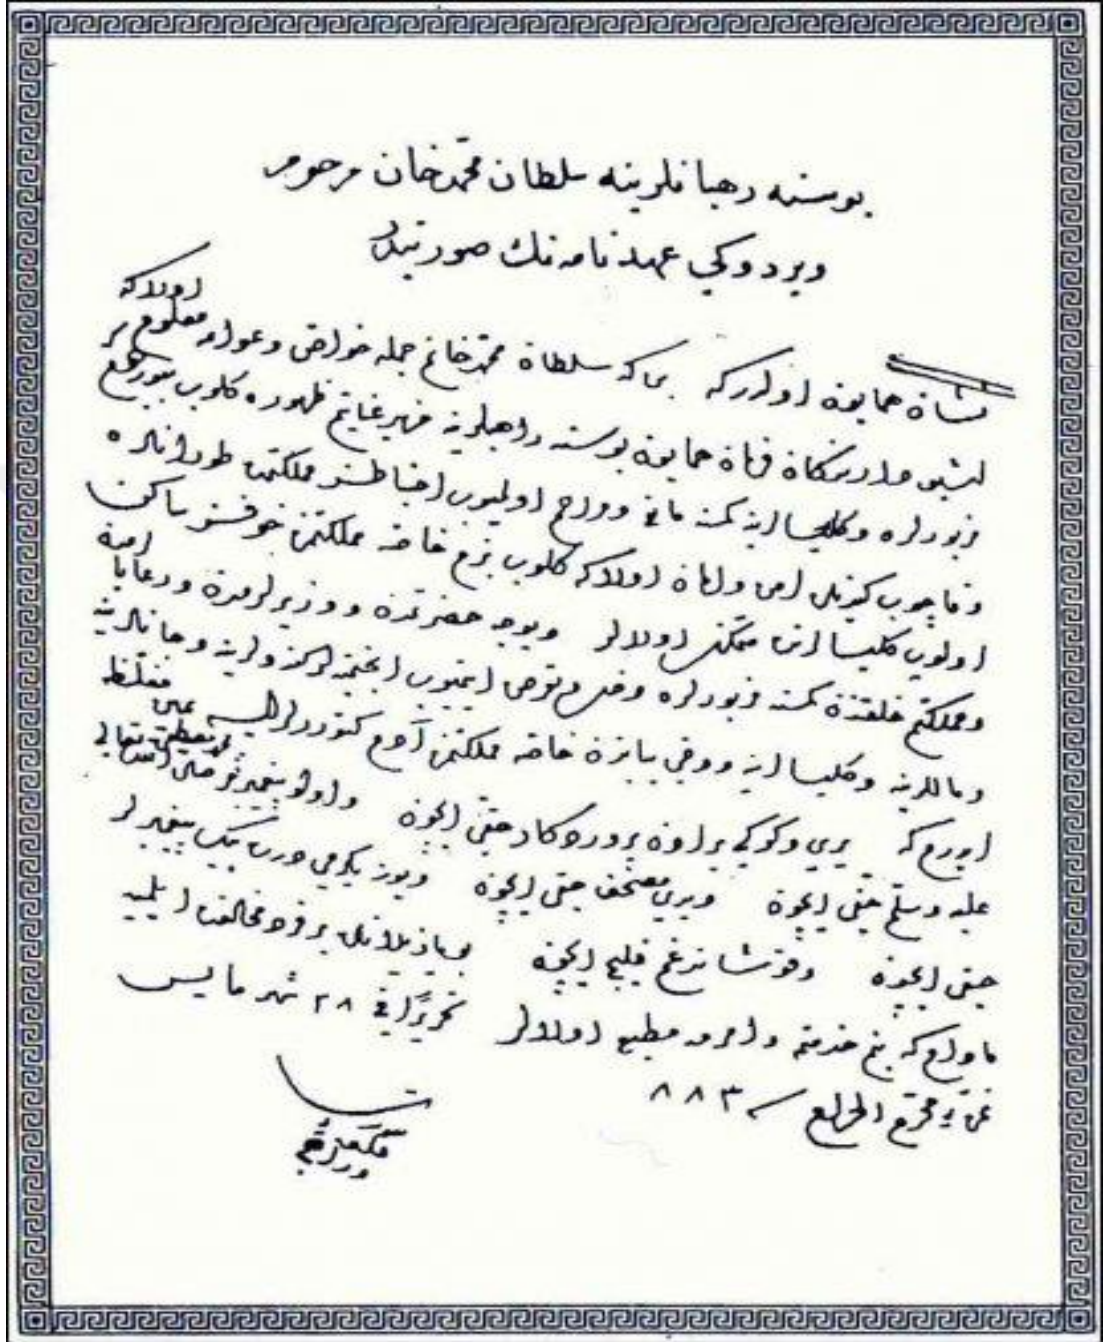 بوسنه رهبانلرينه سلطان محمد خان مرحومر
ويردوكي عهدنامه نك صورتيدر
نشان همايون اولدركه بن كه سلطان محمد خانم جمله خواص و عوامه معلوم اولا كه
اشبو دارندكان فرمان همايون بوسنه راهبلرينه مزيد عنايتم ظهوره كلوب بيوردم كه
مزبورلره و كليسالرينه كمسه مانع و مزاحم اولميوب احتياطسز مملكتمده طورانلره
و قاچوب كيدنلره امن و امان اولا كه كلوب بزم خاصه مملكتمزده خوفسز ساكن
اولوب كليسالرنده متمكن اولالر و يوجه حضرتمدن و وزيرلرمدن و رعايا
و مملكتم خلقندن كمسه مزبورلره دخل و تعرض ايتميوب انجتميه لر كندولرينه و جانلرينه
و ماللرينه و كليسالرينه و دخى يبانزدن خاصه مملكتمزه آدم كتوررلرايسه يمين مغلظه
ايدرم كه يرى و كوكى يرادن پروردكار حقى ايچون و اولو پيغمبرمز صلى الله تعالى
عليه و سلم حقى ايچون و يدى مصحف حقى ايچون و يوز يكرمى درت بيك پيغمبرلر
حقى ايچون و قوشاندوغم قليج ايچون بو يازيلانلره بر فرد مخالفت ايلميه
مادام كه بنم خدمتمه و امرمه مطيع اولالر تحريرًا فى ٢٨ شهر مايس
محرم الحرام سنه ٨٨٣